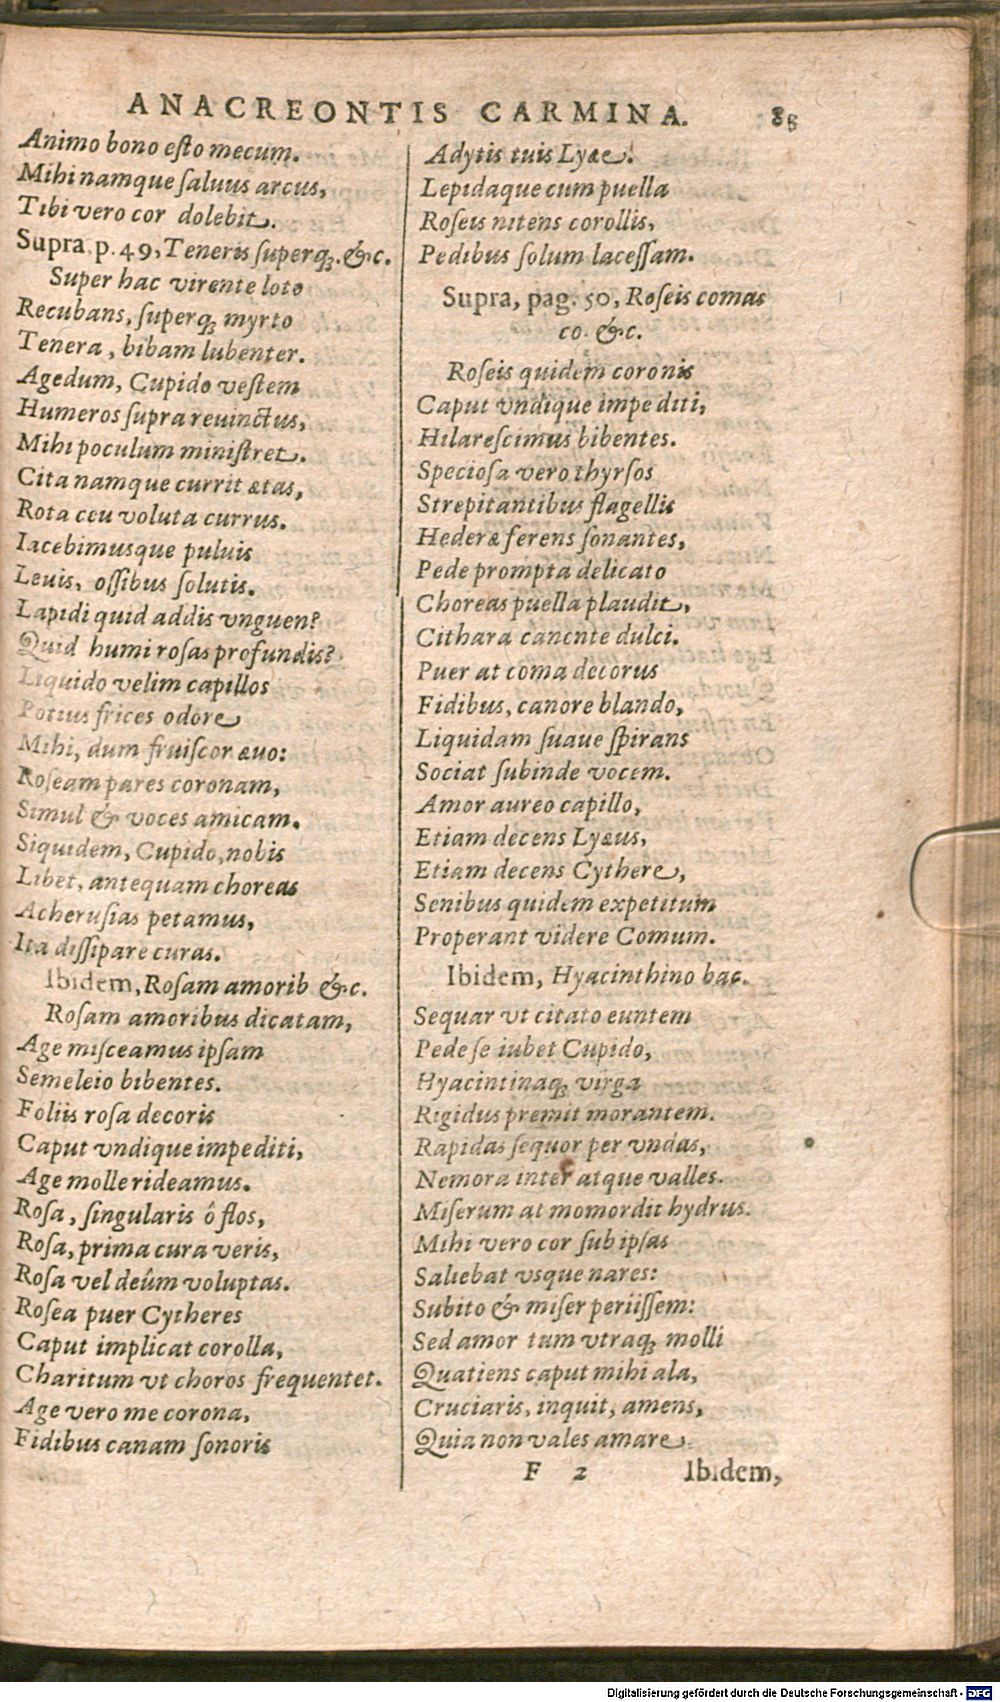 ANACREONTIS CARMINA. 85
Animo bono eſto mecum.
Mihi namque ſaluus arcus,
Tibi vero cor dolebit.
Supra p. 49, Teneris ſuperq;. &c.
Super hac virente loto
Recubans, ſuperq; myrto
Tenera, bibam lubenter.
Agedum, Cupido veſtem
Humeros ſupra reuinctus,
Mihi poculum miniſtret.
Cita namque currit ætas,
Rota ceu voluta currus.
Iacebimusque puluis
Leuis, oſſibus ſolutis.
Lapidi quid addis vnguen?
Quid humi roſas profundis?
Liquido velim capillos
Potius frices odore
Mihi, dum fruiſcor æuo:
Roſeam pares coronam,
Simul & voces amicam.
Siquidem, Cupido, nobis
Libet, antequam choreas
Acheruſias petamus,
Ita diſſipare curas.
Ibidem, Roſam amorib &c.
Roſam amoribus dicatam,
Age miſceamus ipſam
Semeleio bibentes.
Foliis roſa decoris
Caput vndique impediti,
Age molle rideamus.
Roſa, ſingularis ô flos,
Roſa, prima cura veris,
Roſa vel deûm voluptas.
Roſea puer Cytheres
Caput implicat corolla,
Charitum vt choros frequentet.
Age vero me corona,
Fidibus canam ſonoris
Adytis tuis Lyæe.
Lepidaque cum puella
Roſeis nitens corollis,
Pedibus ſolum laceſſam.
Supra, pag. 50, Roſeis comas
co. &c.
Roſeis quidem coronis
Caput vndique impediti,
Hilareſcimus bibentes.
Specioſa vero thyrſos
Strepitantibus flagellis
Hederæ ferens ſonantes,
Pede prompta delicato
Choreas puella plaudit,
Cithara canente dulci.
Puer at coma decorus
Fidibus, canore blando,
Liquidam ſuaue ſpirans
Sociat ſubinde vocem.
Amor aureo capillo,
Etiam decens Lyæus,
Etiam decens Cythere,
Senibus quidem expetitum
Properant videre Comum.
Ibidem, Hyacinthino bac.
Sequar vt citato euntem
Pede ſe iubet Cupido,
Hyacintinaq; virga
Rigidus premit morantem.
Rapidas ſequor per vndas,
Nemora inter atque valles.
Miſerum at momordit hydrus.
Mihi vero cor ſub ipſas
Saliebat vsque nares:
Subito & miſer periiſſem:
Sed amor tum vtraq; molli
Quatiens caput mihi ala,
Cruciaris, inquit, amens,
Quia non vales amare.
F 2 Ibidem,
Digitalisierung gefördert durch die Deutsche Forschungsgemeinschaft - DFG